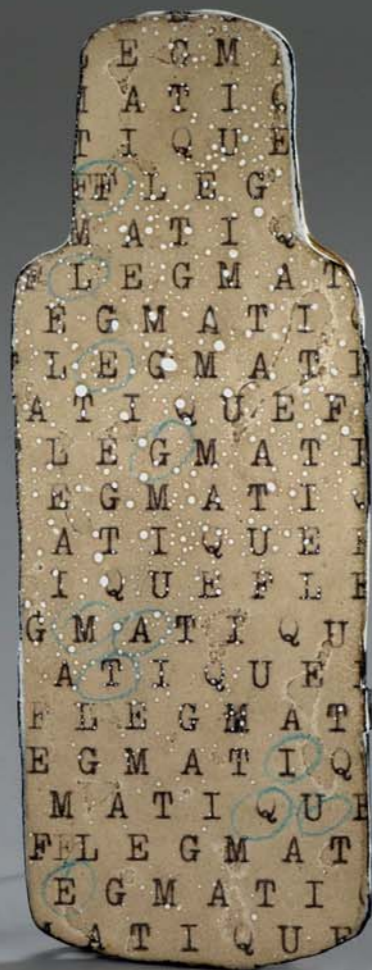 L E G M A
A T I Q
T I Q U E
F F L E G
M A T I Q
F L E G M A T
E G M A T I
L E G M A T I
A T I Q U E F
L E G M A T I
E G M A T I Q
A T I Q U E F
I Q U E F L E
G M A T I Q U
A T I Q U E
F L E G M A T
E G M A T I Q
M A T I Q U E
F F L E G M A T
E G M A T I Q
M A T I Q U E